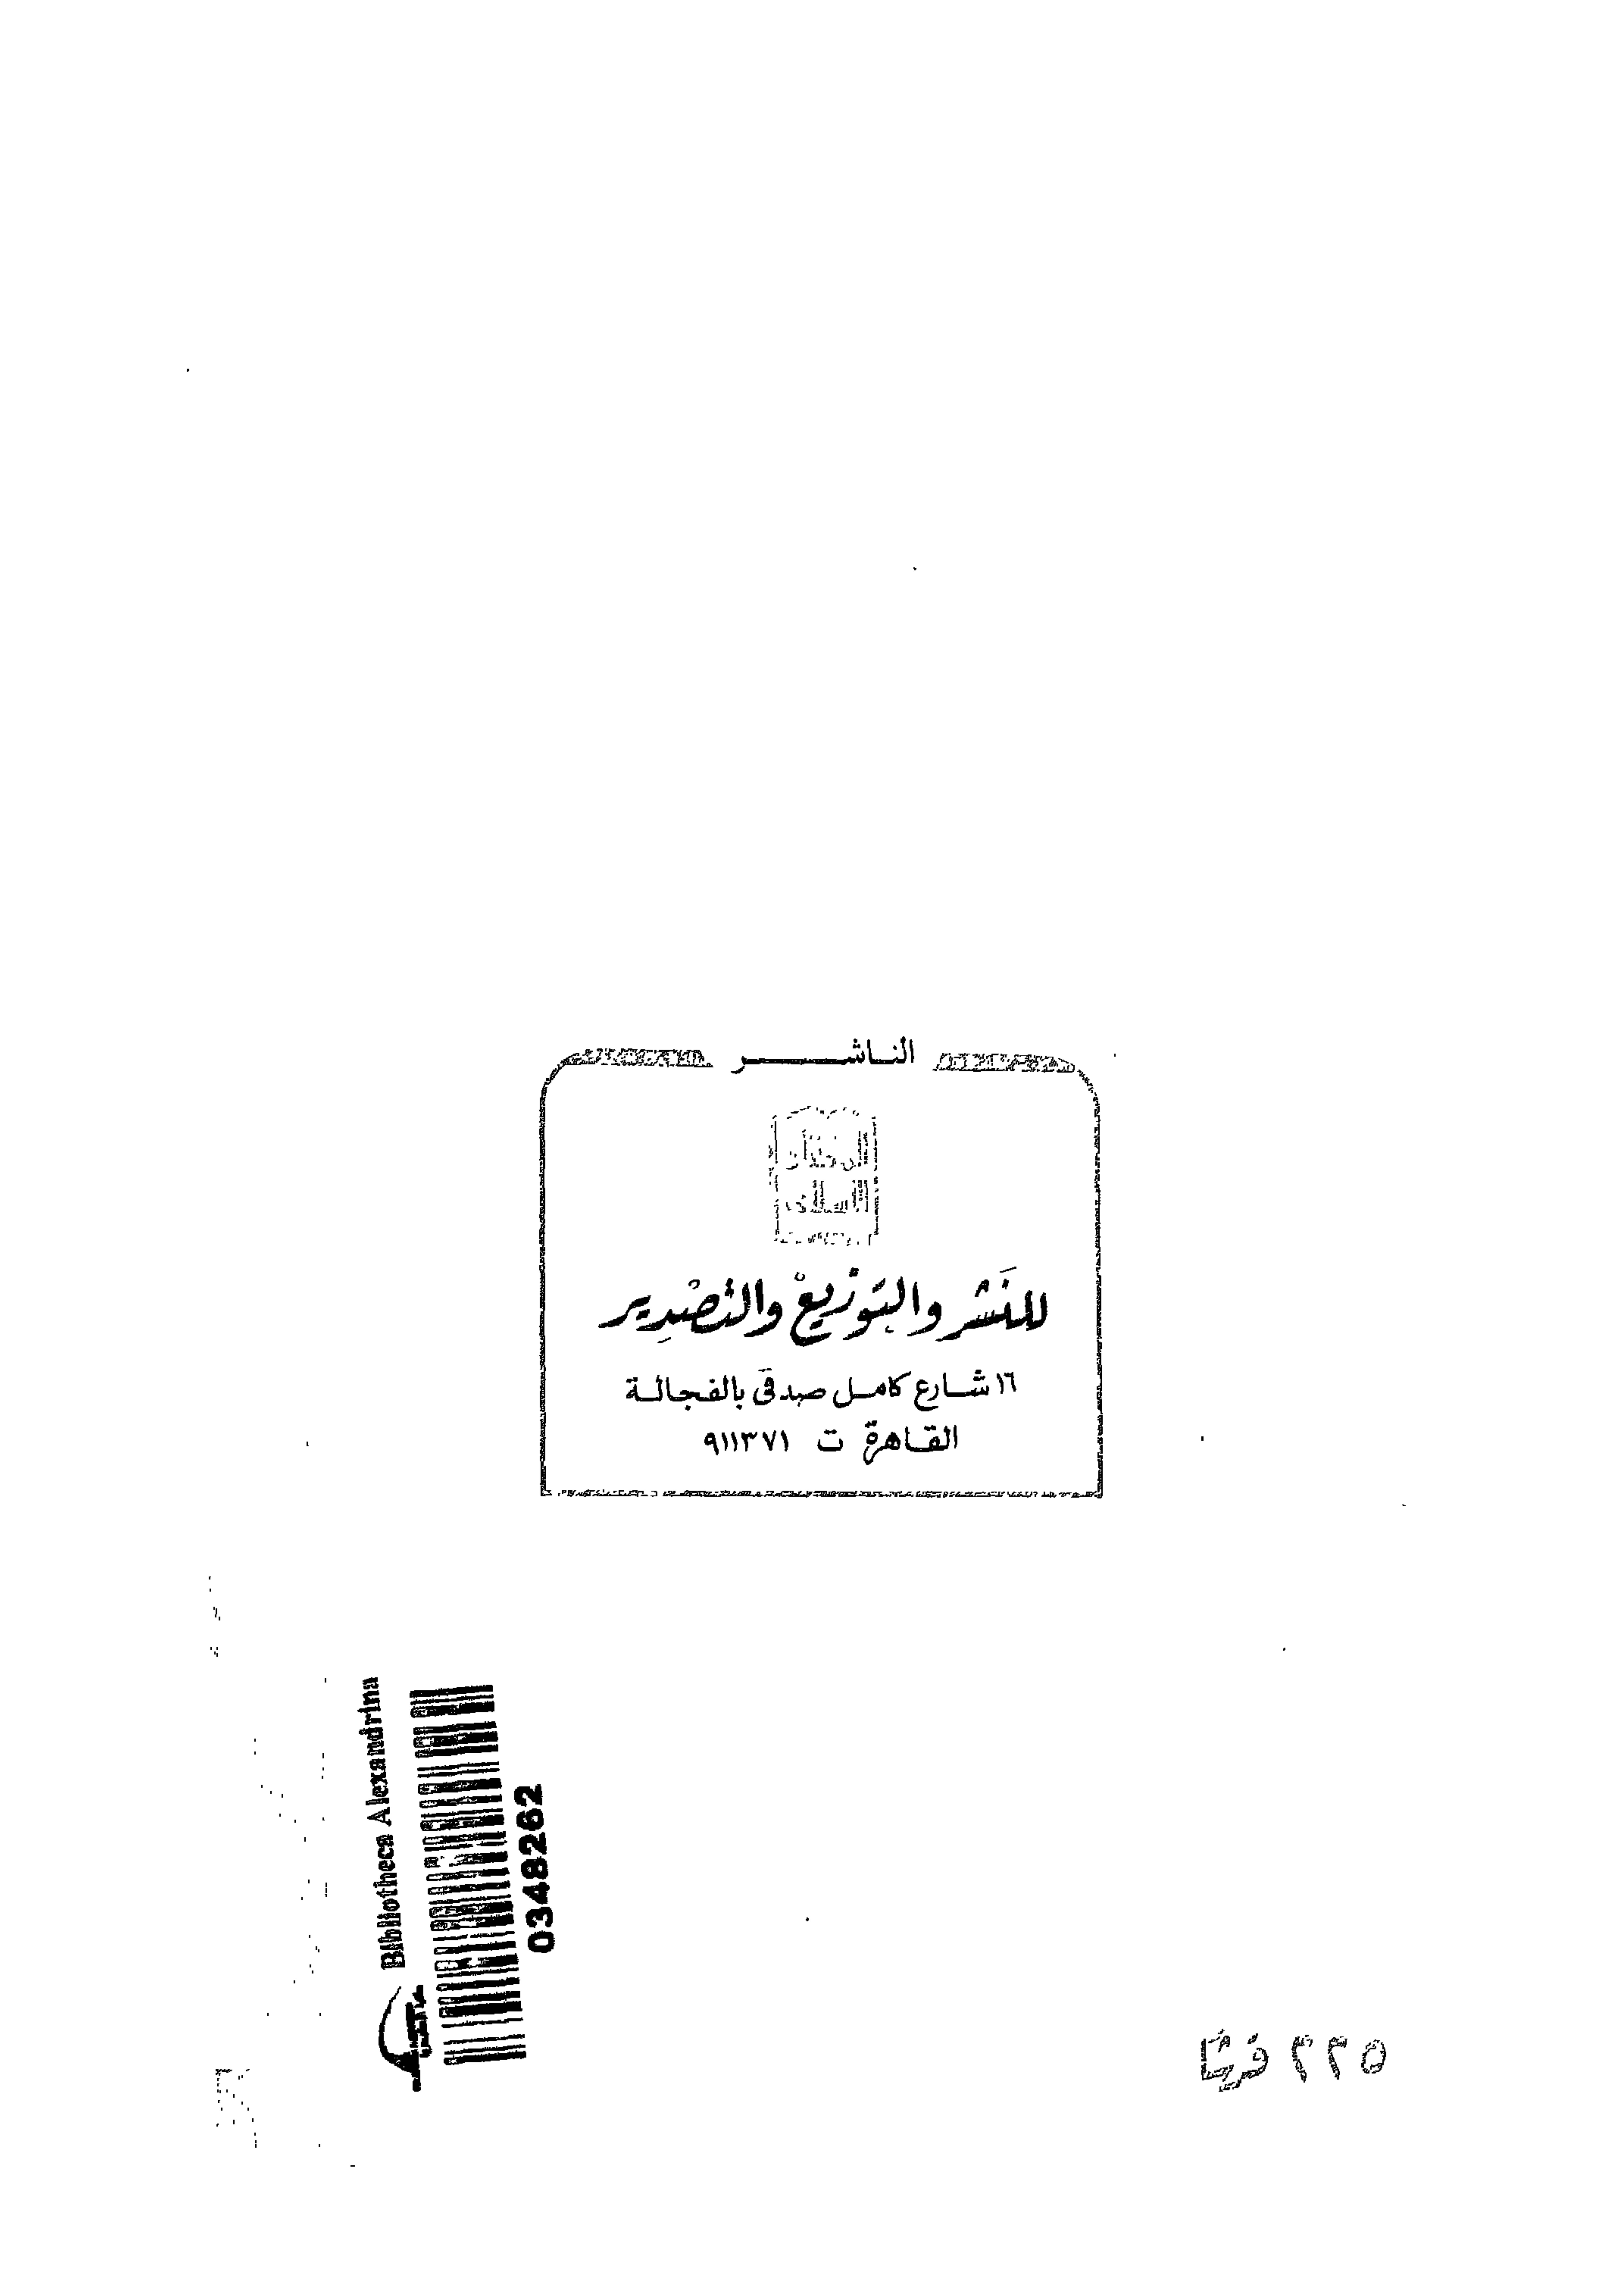 الناشر
المختار
الإسلامي
للنَشر والتَوزيعْ والتصْدِير
١٦ شارع كامل صدقى بالفجالة
القاهرة ت ٩١١٣٧١
Bibliotheca Alexandrina
0348262
٢٢٥ قرشا